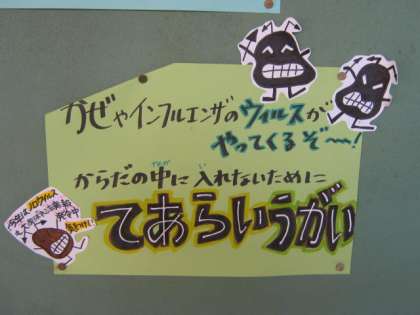 かぜやインフルエンザのウィルスが
やってくるぞ〜〜!
からだの中に入れないために
てあらいうがい
今年はノロウイルス